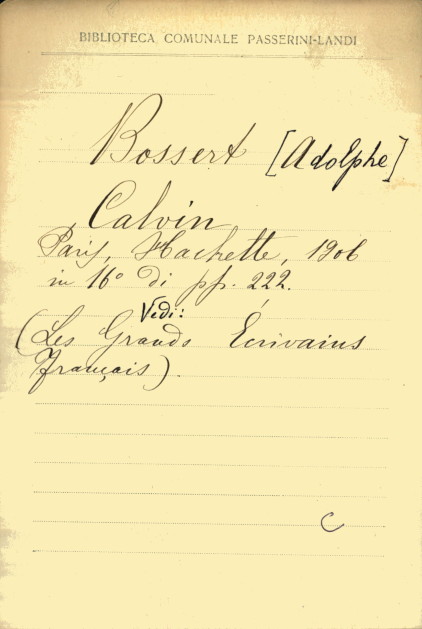 BIBLIOTECA COMUNALE PASSERINI-LANDI
Bossert [Adolphe]
Calvin
Paris, Hachette, 1906
in 16° di pp. 222.
Vedi:
(Les Grands Écrivains
Français).
C